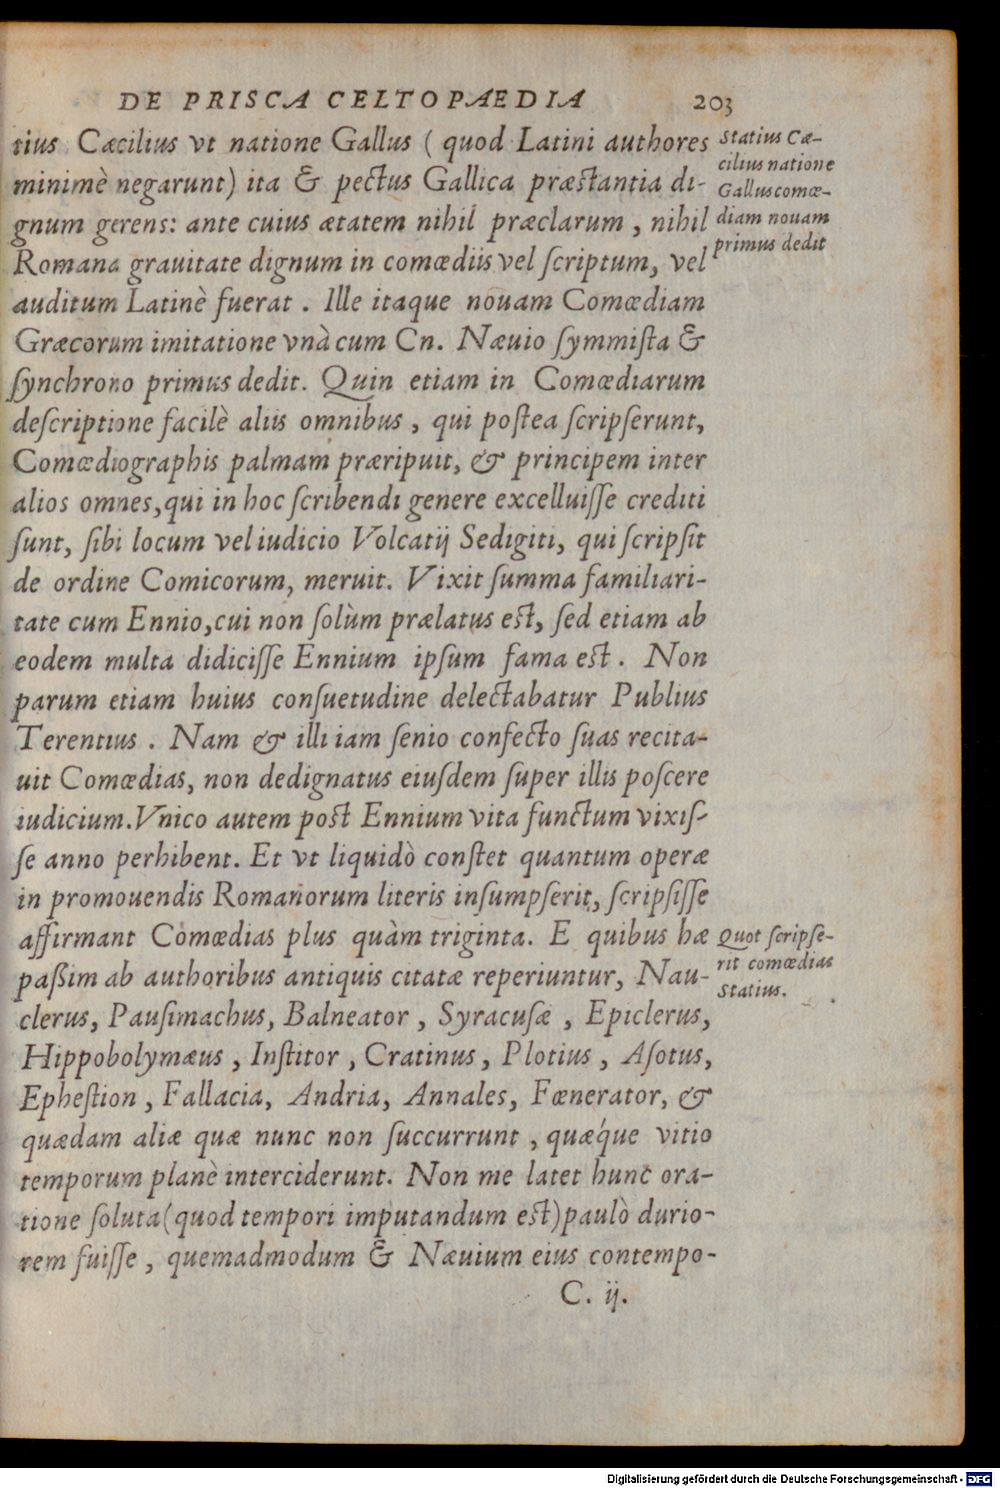 DE PRISCA CELTOPAEDIA 203
tius Cæcilius vt natione Gallus ( quod Latini authores
minimè negarunt) ita & pectus Gallica præstantia di-
gnum gerens: ante cuius ætatem nihil præclarum , nihil
Romana grauitate dignum in comœdiis vel ſcriptum, vel
auditum Latinè fuerat . Ille itaque nouam Comœdiam
Græcorum imitatione vnà cum Cn. Næuio ſymmiſta &
ſynchrono primus dedit. Quin etiam in Comœdiarum
deſcriptione facilè aliis omnibus , qui poſtea ſcripſerunt,
Comœdiographis palmam præripuit, & principem inter
alios omnes, qui in hoc ſcribendi genere excelluiſſe crediti
ſunt, ſibi locum vel iudicio Volcatij Sedigiti, qui ſcripſit
de ordine Comicorum, meruit. Vixit ſumma familiari-
tate cum Ennio, cui non ſolùm prælatus eſt, ſed etiam ab
eodem multa didiciſſe Ennium ipſum fama eſt . Non
parum etiam huius conſuetudine delectabatur Publius
Terentius . Nam & illi iam ſenio confecto ſuas recita-
uit Comœdias, non dedignatus eiuſdem ſuper illis poſcere
iudicium. Vnico autem poſt Ennium vita functum vixiſ-
ſe anno perhibent. Et vt liquidò conſtet quantum operæ
in promouendis Romanorum literis inſumpſerit, ſcripſiſſe
affirmant Comœdias plus quàm triginta. E quibus hæ
paßim ab authoribus antiquis citatæ reperiuntur, Nau-
clerus, Pauſimachus, Balneator , Syracuſæ , Epiclerus,
Hippobolymæus , Inſtitor , Cratinus , Plotius , Aſotus,
Epheſtion , Fallacia, Andria, Annales, Fœnerator, &
quædam aliæ quæ nunc non ſuccurrunt , quǽque vitio
temporum planè interciderunt. Non me latet hunc ora-
tione ſoluta (quod tempori imputandum eſt) paulò durio-
rem fuiſſe , quemadmodum & Næuium eius contempo-
C. ij.
Statius Cæ-
cilius natione
Gallus comœ-
diam nouam
primus dedit
Quot ſcripſe-
rit comœdias
Statius.
Digitalisierung gefördert durch die Deutsche Forschungsgemeinschaft - DFG